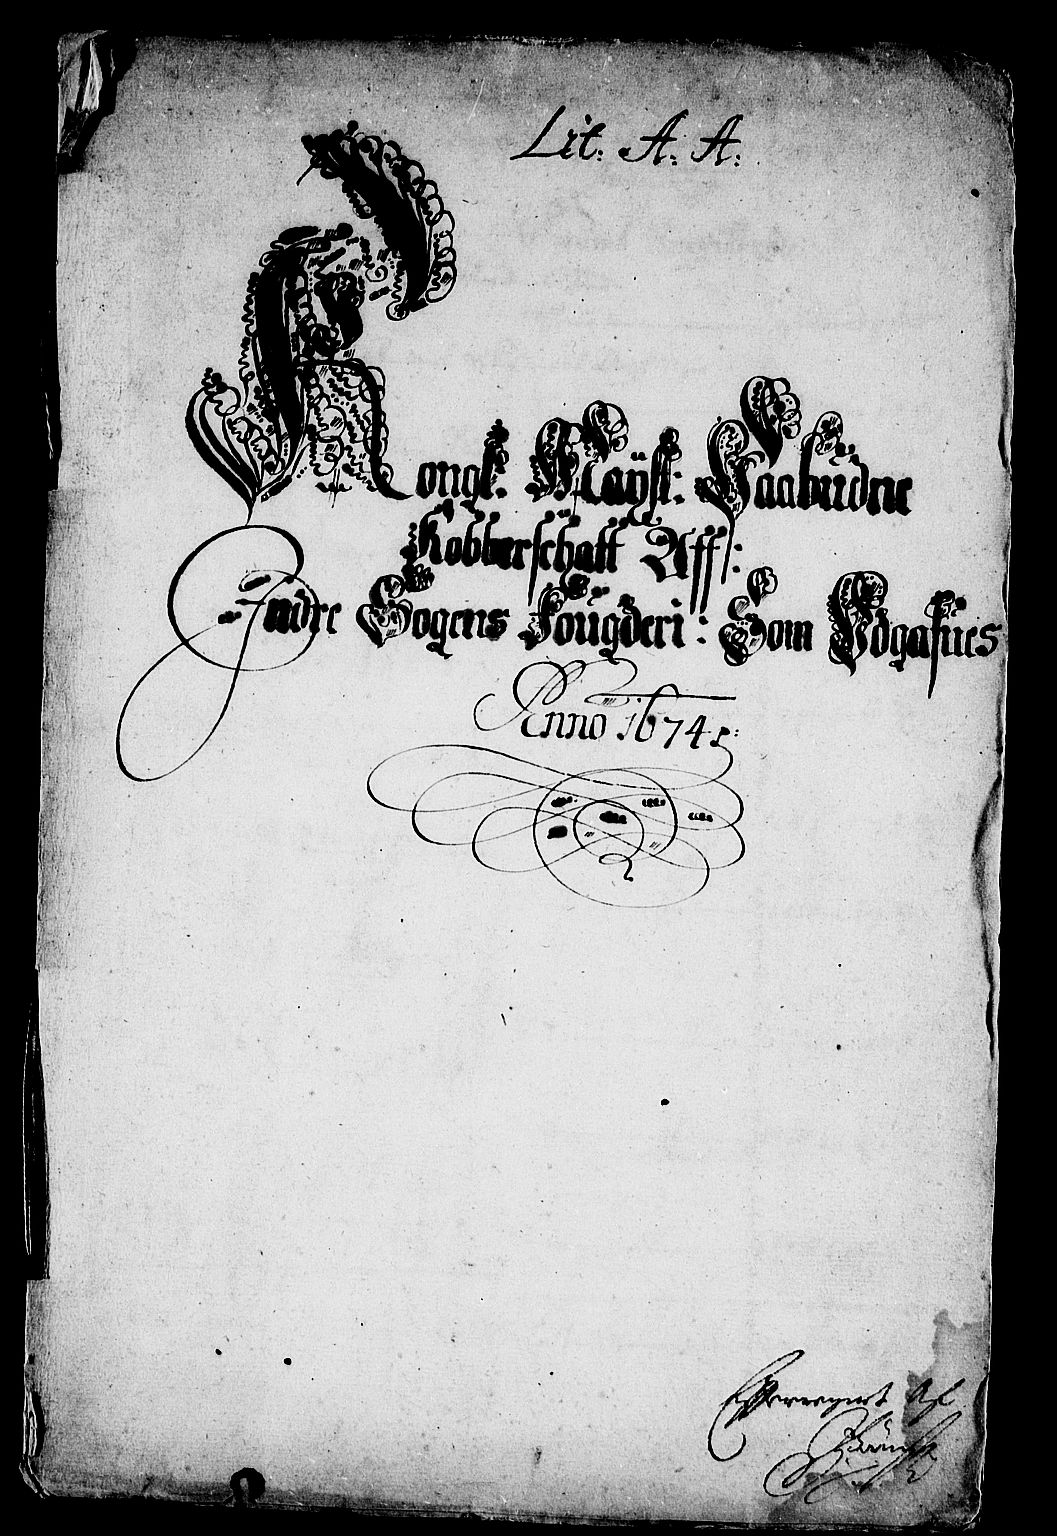 Lit. A. A.
Kongl. Maÿst: Paabudne
Kobberschatt Aff:
Indre Sogens Fougderi: Som Udgafues
Anno 1674